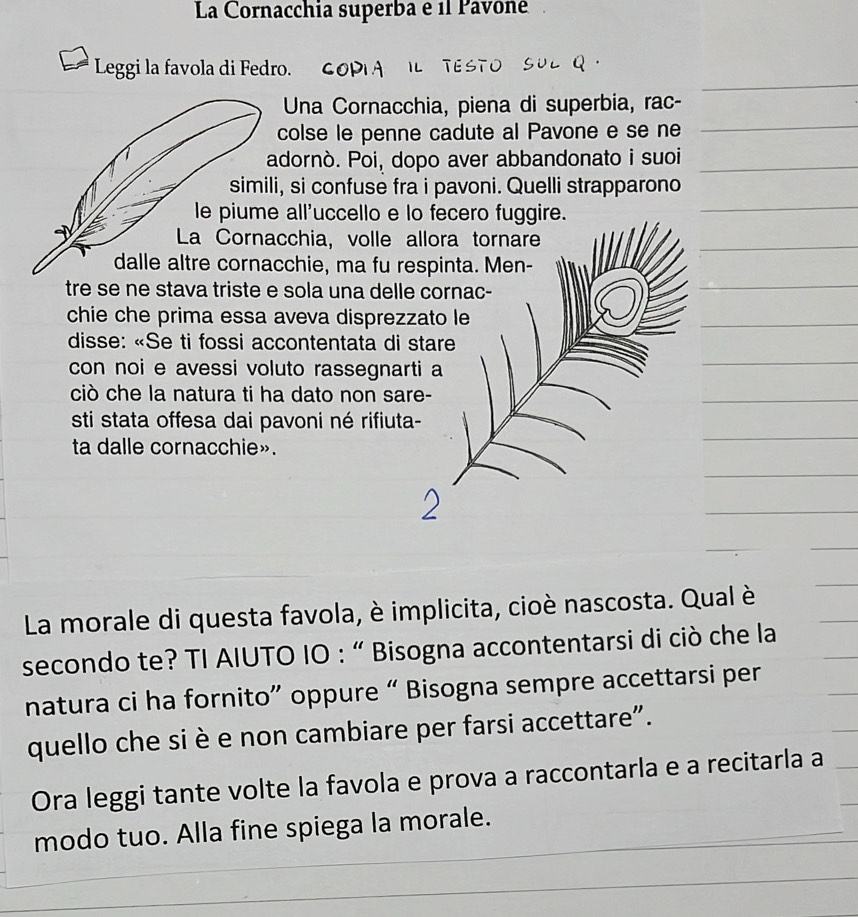 La Cornacchia superba e il Pavone
Leggi la favola di Fedro. COPIA IL TESTO SUL Q.
Una Cornacchia, piena di superbia, rac-
colse le penne cadute al Pavone e se ne
adornò. Poi, dopo aver abbandonato i suoi
simili, si confuse fra i pavoni. Quelli strapparono
le piume all'uccello e lo fecero fuggire.
La Cornacchia, volle allora tornare
dalle altre cornacchie, ma fu respinta. Men-
tre se ne stava triste e sola una delle cornac-
chie che prima essa aveva disprezzato le
disse: «Se ti fossi accontentata di stare
con noi e avessi voluto rassegnarti a
ciò che la natura ti ha dato non sare-
sti stata offesa dai pavoni né rifiuta-
ta dalle cornacchie».
2
La morale di questa favola, è implicita, cioè nascosta. Qual è
secondo te? TI AIUTO IO : “ Bisogna accontentarsi di ciò che la
natura ci ha fornito” oppure “ Bisogna sempre accettarsi per
quello che si è e non cambiare per farsi accettare”.
Ora leggi tante volte la favola e prova a raccontarla e a recitarla a
modo tuo. Alla fine spiega la morale.